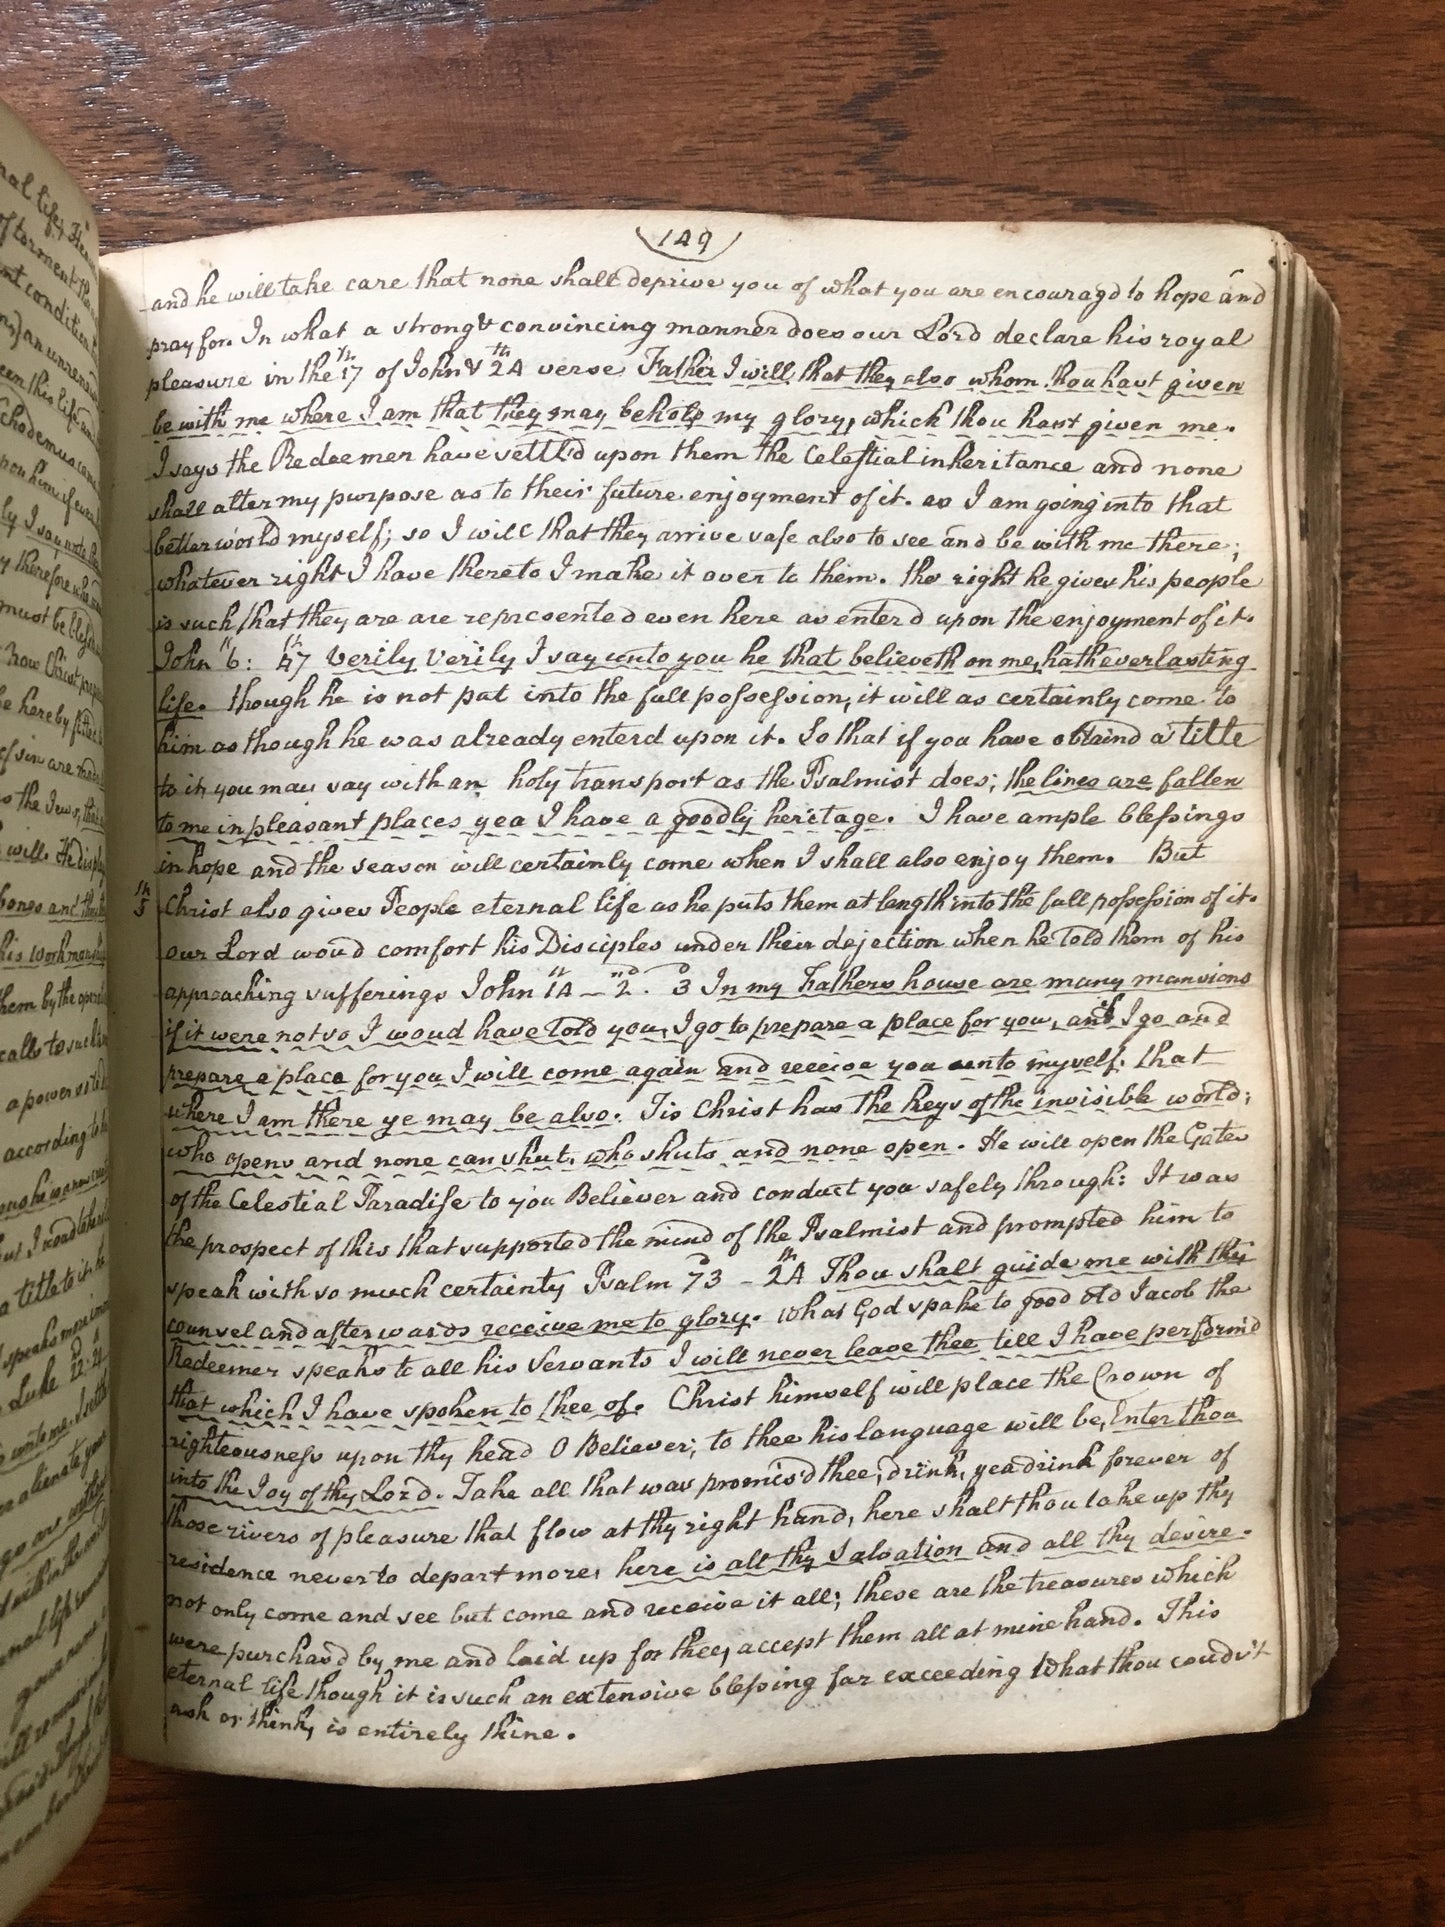 149
and he will take care that none shall deprive you of what you are encouragd to hope and
pray for. In what a strong & convincing manner does our Lord declare his royal
pleasure in the 17th of John & 24th verse Father I will that they also whom thou hast given
be with me where I am that they may behold my glory, which thou hast given me.
I says the Redeemer have settl'd upon them the Celestial inheritance and none
shall alter my purpose as to their future enjoyment of it. as I am going into that
better world myself; so I will that they arrive safe also to see and be with me there;
whatever right I have thereto I make it over to them. the right he gives his people
is such that they are are represented even here as enterd upon the enjoyment of it.
John 6th: 47th Verily Verily I say unto you he that believeth on me, hath everlasting
life. though he is not put into the full possession, it will as certainly come to
him as though he was already enterd upon it. So that if you have obtaind a title
to it, you may say with an holy transport as the Psalmist does; the lines are fallen
to me in pleasant places yea I have a goodly heritage. I have ample blessings
in hope and the season will certainly come when I shall also enjoy them. But
5th Christ also gives People eternal life as he puts them at length into the full possession of it.
our Lord woud comfort his Disciples under their dejection when he Told them of his
approaching sufferings John 14th - 2nd. 3d In my Fathers house are many mansions
if it were not so I woud have Told you, I go to prepare a place for you, and if I go and
prepare a place for you I will come again and receive you unto myself. that
where I am there ye may be also. Tis Christ has the keys of the invisible world;
who opens and none can shut, who shuts and none open. He will open the Gates
of the Celestial Paradise to you Believer and conduct you safely through: It was
the prospect of this that supported the mind of the Psalmist and prompted him to
speak with so much certainty Psalm 73d - 24th Thou shalt guide me with thy
counsel and afterwards receive me to glory. What God spake to good old Jacob the
Redeemer speaks to all his Servants I will never leave thee till I have perform'd
that which I have spoken to thee of. Christ himself will place the Crown of
righteousness upon thy head O Believer; to thee his language will be, Enter thou
into the Joy of thy Lord. Take all that was promis'd thee, drink, yea drink forever of
those rivers of pleasure that flow at thy right hand, here shalt thou take up thy
residence never to depart more, here is all thy Salvation and all thy desire.
not only come and see but come and receive it all; these are the treasures which
were purchas'd by me and laid up for thee, accept them all at mine hand. This
eternal life though it is such an extensive blessing far exceeding What thou coud'st
ask or think, is entirely thine.